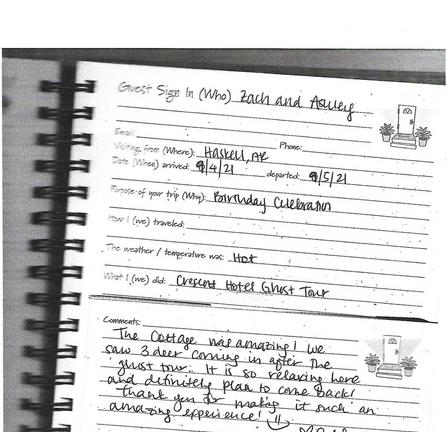 Guest Sign In (Who) Zach and Ashley
Email Phone:
Visiting from (Where): Haskell, AR
Date (When) arrived: 9/4/21 departed: 9/5/21
Purpose of your trip (Why): Birthday Celebration
How I (we) traveled:
The weather / temperature was: Hot
What I (we) did: Crescent Hotel Ghost Tour
Comments:
The Cottage was amazing! We
saw 3 deer coming in after the
ghost tour. It is so relaxing here
and definitely plan to come back!
Thank you for making it such an
amazing experience!